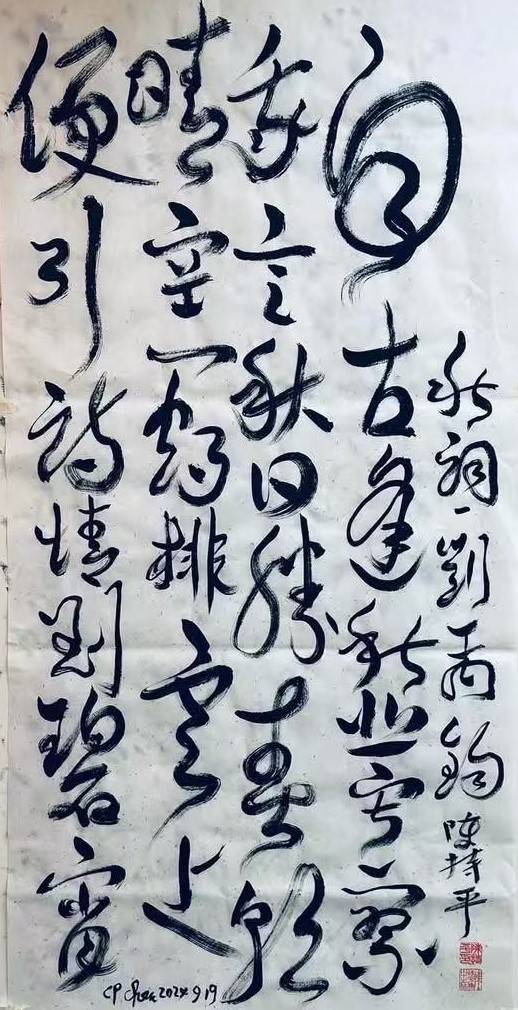 秋詞一劉禹錫 陳持平
自古逢秋悲寂寥
我言秋日勝春朝
晴空一鶴排雲上
便引詩情到碧霄
CP Chen 2024 9 19